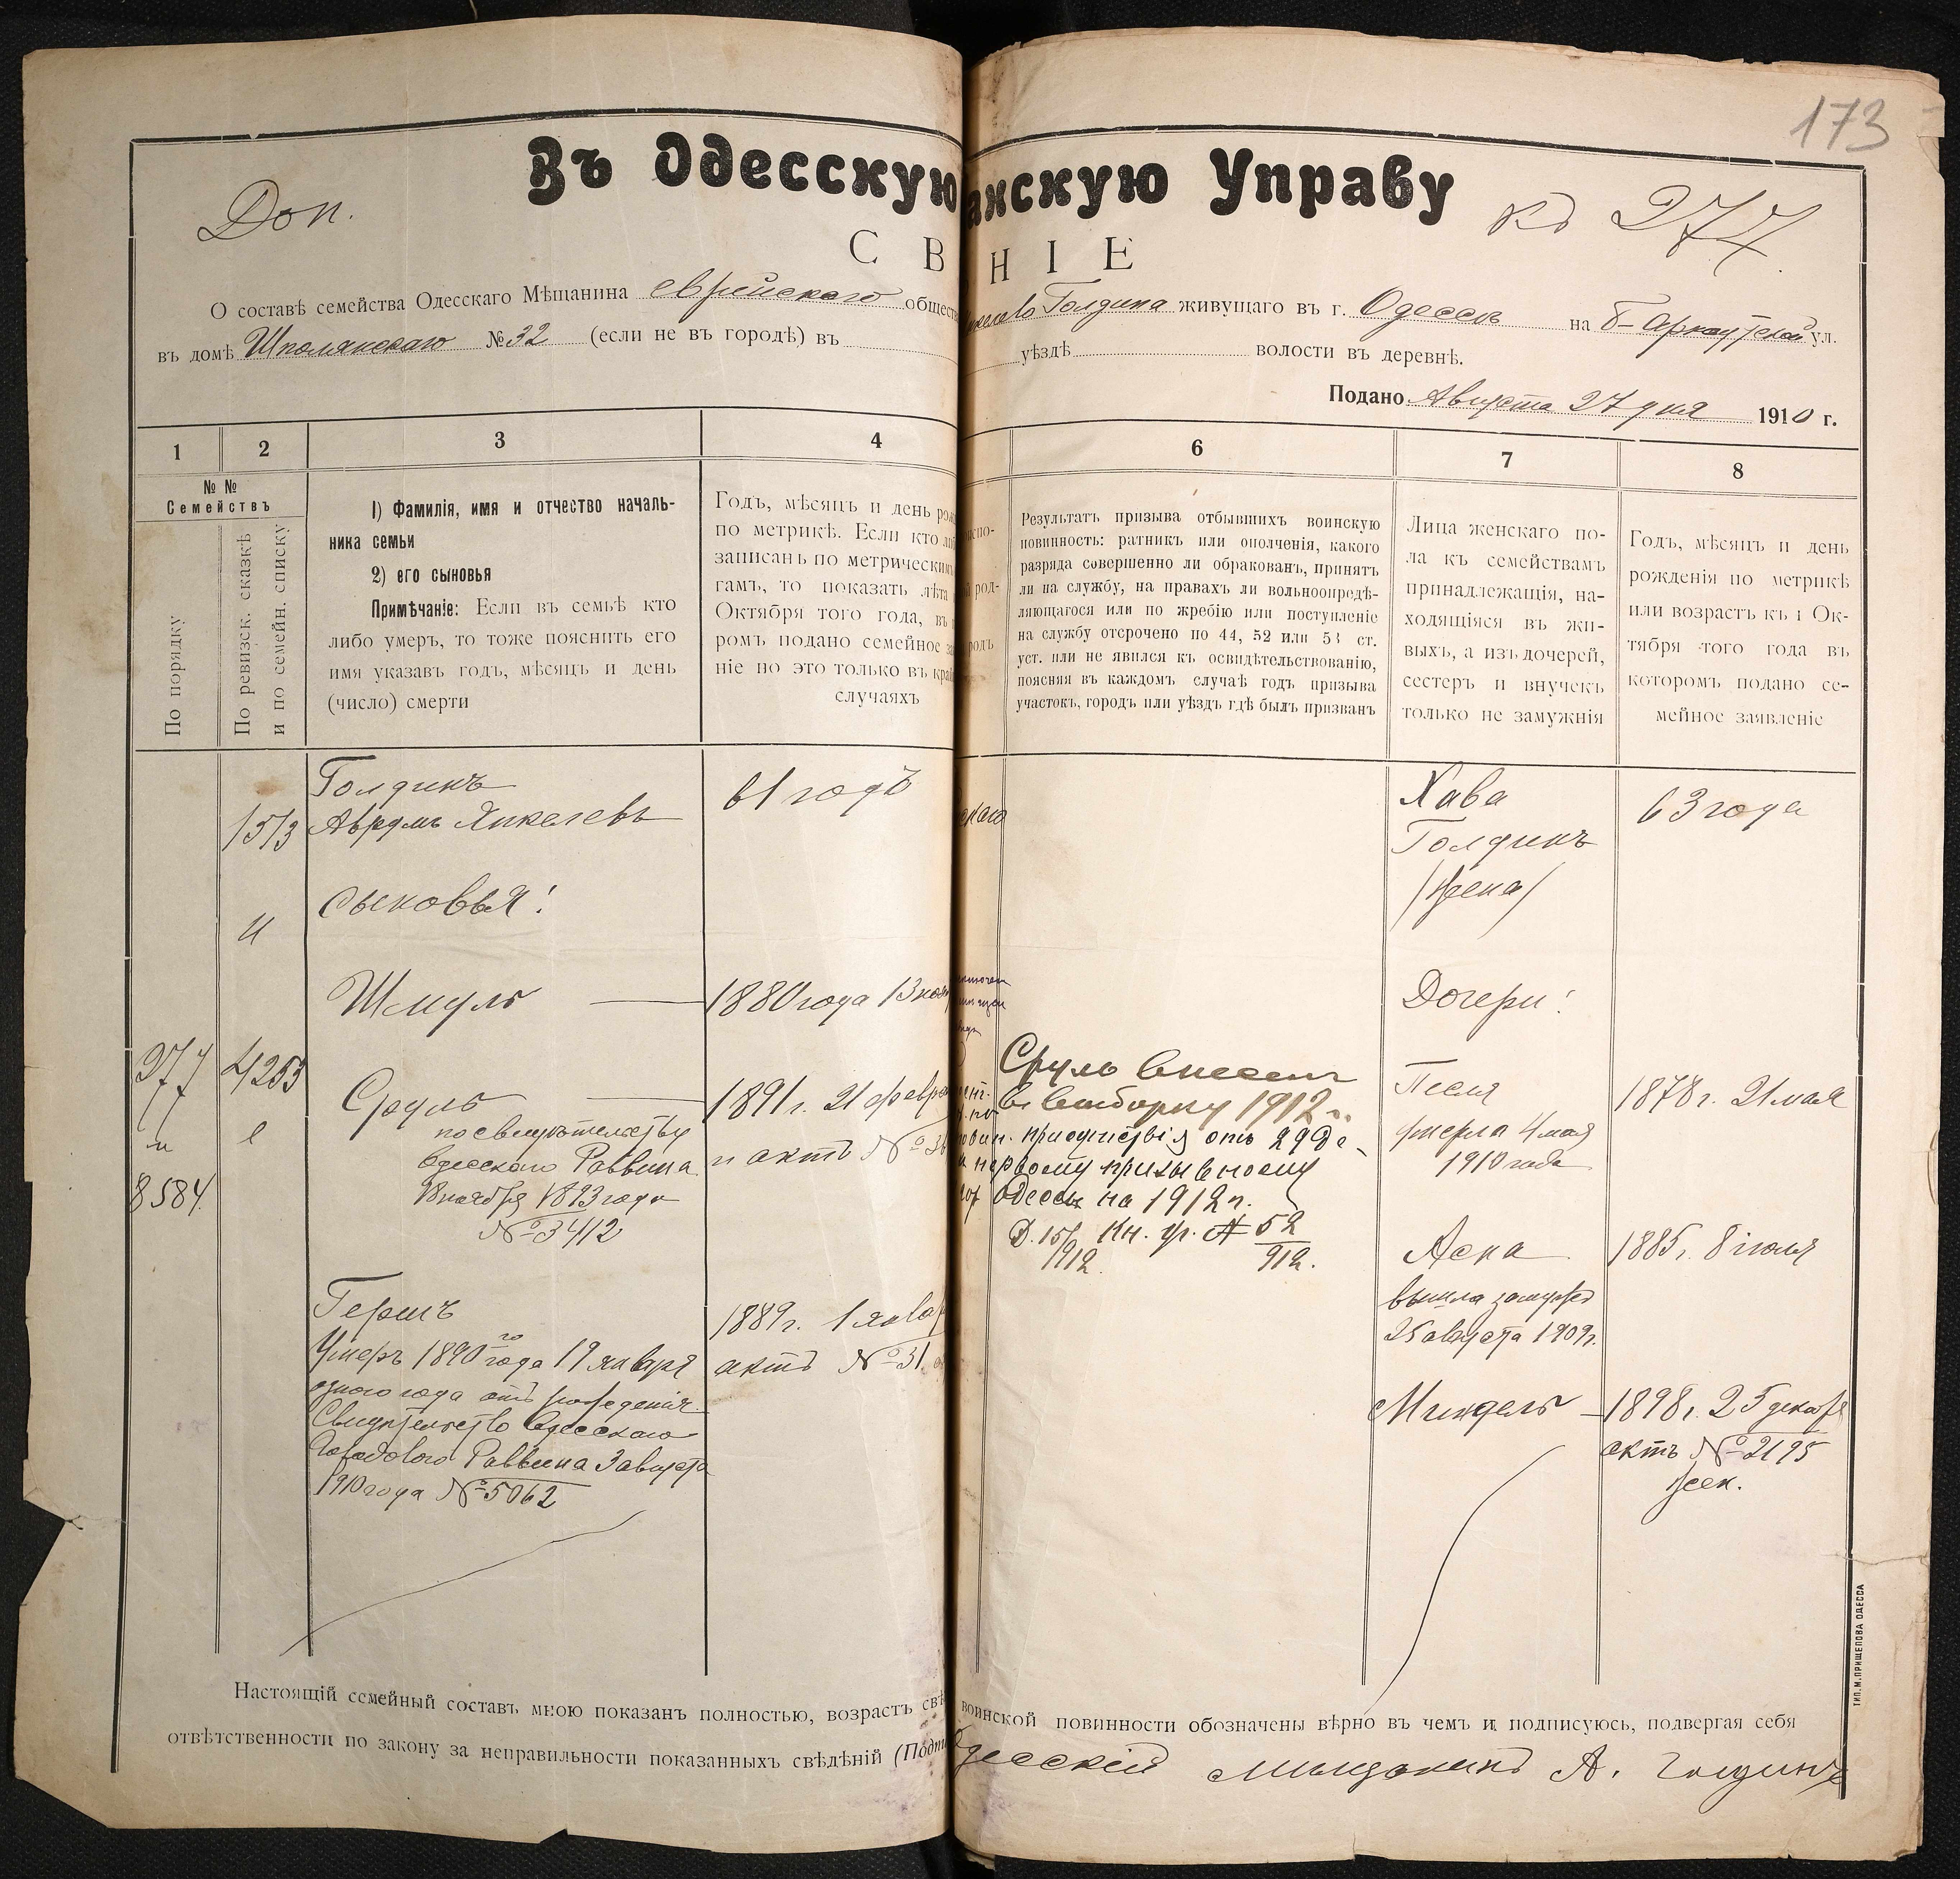 173
Въ Одесскую
анскую Управу
Доп.
къ 277
С В
Н І Е
О составѣ семейства Одесскаго Мѣщанина еврейскаго общест
Голдина живущаго въ г. Одессѣ на Б-Арнаутской ул.
въ домѣ Шполянскаго № 32 (если не въ городѣ) въ
уѣздѣ волости въ деревнѣ.
Подано Августа 27 дня 1910 г.
1
2
3
4
6
7
8
№ №
Семействъ
По порядку
По ревизск. сказкѣ
и по семейн. списку
1) Фамилія, имя и отчество началь-
ника семьи
2) его сыновья
Примѣчаніе: Если въ семьѣ кто
либо умеръ, то тоже пояснить его
имя указавъ годъ, мѣсяцъ и день
(число) смерти
Годъ, мѣсяцъ и день ро
по метрикѣ. Если кто
записанъ по метрически
гамъ, то показать лѣта
Октября того года, въ
ромъ подано семейное за
ніе но это только въ край
случаяхъ
испо-
род-
родъ
Результатъ призыва отбывшихъ воинскую
повинность: ратникъ или ополченія, какого
разряда совершенно ли обракованъ, принятъ
ли на службу, на правахъ ли вольноопредѣ-
ляющагося или по жребію или поступленіе
на службу отсрочено по 44, 52 или 53 ст.
уст. или не явился къ освидѣтельствованію,
поясняя въ каждомъ случаѣ годъ призыва
участокъ, городъ или уѣздъ гдѣ былъ призванъ
Лица женскаго по-
ла къ семействамъ
принадлежащія, на-
ходящіяся въ жи-
выхъ, а изъ дочерей,
сестеръ и внучекъ
только не замужнія
Годъ, мѣсяцъ и день
рожденія по метрикѣ
или возрастъ къ 1 Ок-
тября того года въ
которомъ подано се-
мейное заявленіе
Голдинъ
1573 Аврумъ Янкелевъ
61 годъ
Хава
Голдинъ
/жена/
63 года
и
Сыновья:
Шмуль
1880 года 13 ноя
Дочери:
277
и
8584.
4263
Сруль
по свидѣтельству
Одесскаго Раввина
18 ноября 1893 года
№ 3412
1891 г. 21 февра
актъ №
Сруль внесенъ
въ выборку 1912 г.
присутствія отъ 29 Де-
первому призывному
Одессѣ на 1912 г.
Д. 15/1912. Кн. ур. № 52/912.
Песля
умерла 4 мая
1910 года
1878 г. 21 мая
Асна
вышла замужъ
25 августа 1909 г.
1885 г. 8 іюля
Гершъ
Умеръ 1890 го года 19 января
одного года отъ рожденія.
Свидѣтельство Одесскаго
Городового Раввина 3 августа
1910 года № 5062
1889 г. 1 январ
актъ № 31.
Миндель
1898 г. 25 декабря
актъ № 2195
жен.
Настоящій семейный составъ мною показанъ полностью, возрастъ свѣ
воинской повинности обозначены вѣрно въ чемъ и подписуюсь, подвергая себя
отвѣтственности по закону за неправильности показанныхъ свѣдѣній (Подп
десскій мѣщанинъ А. Голдинъ
ТИП. М. ПРИЩЕПОВА ОДЕССА